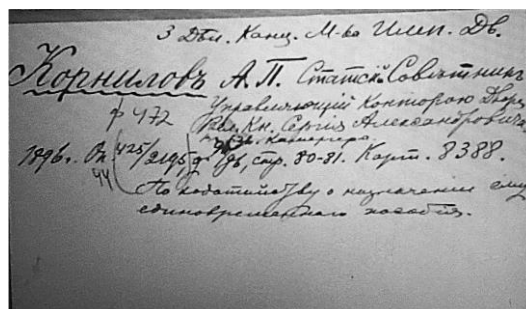 3 Дѣл. Канц. М-ва Имп. Дв.
Корниловъ А. П. Статскій Совѣтникъ
Управляющій Конторою Двора
ф 472
Вел. Кн. Сергія Александровича
1896 г. Оп. 425/2195, стр. 80-81. Карт. 8388.
44
По ходатайству о назначеніи ему
единовременнаго пособія.